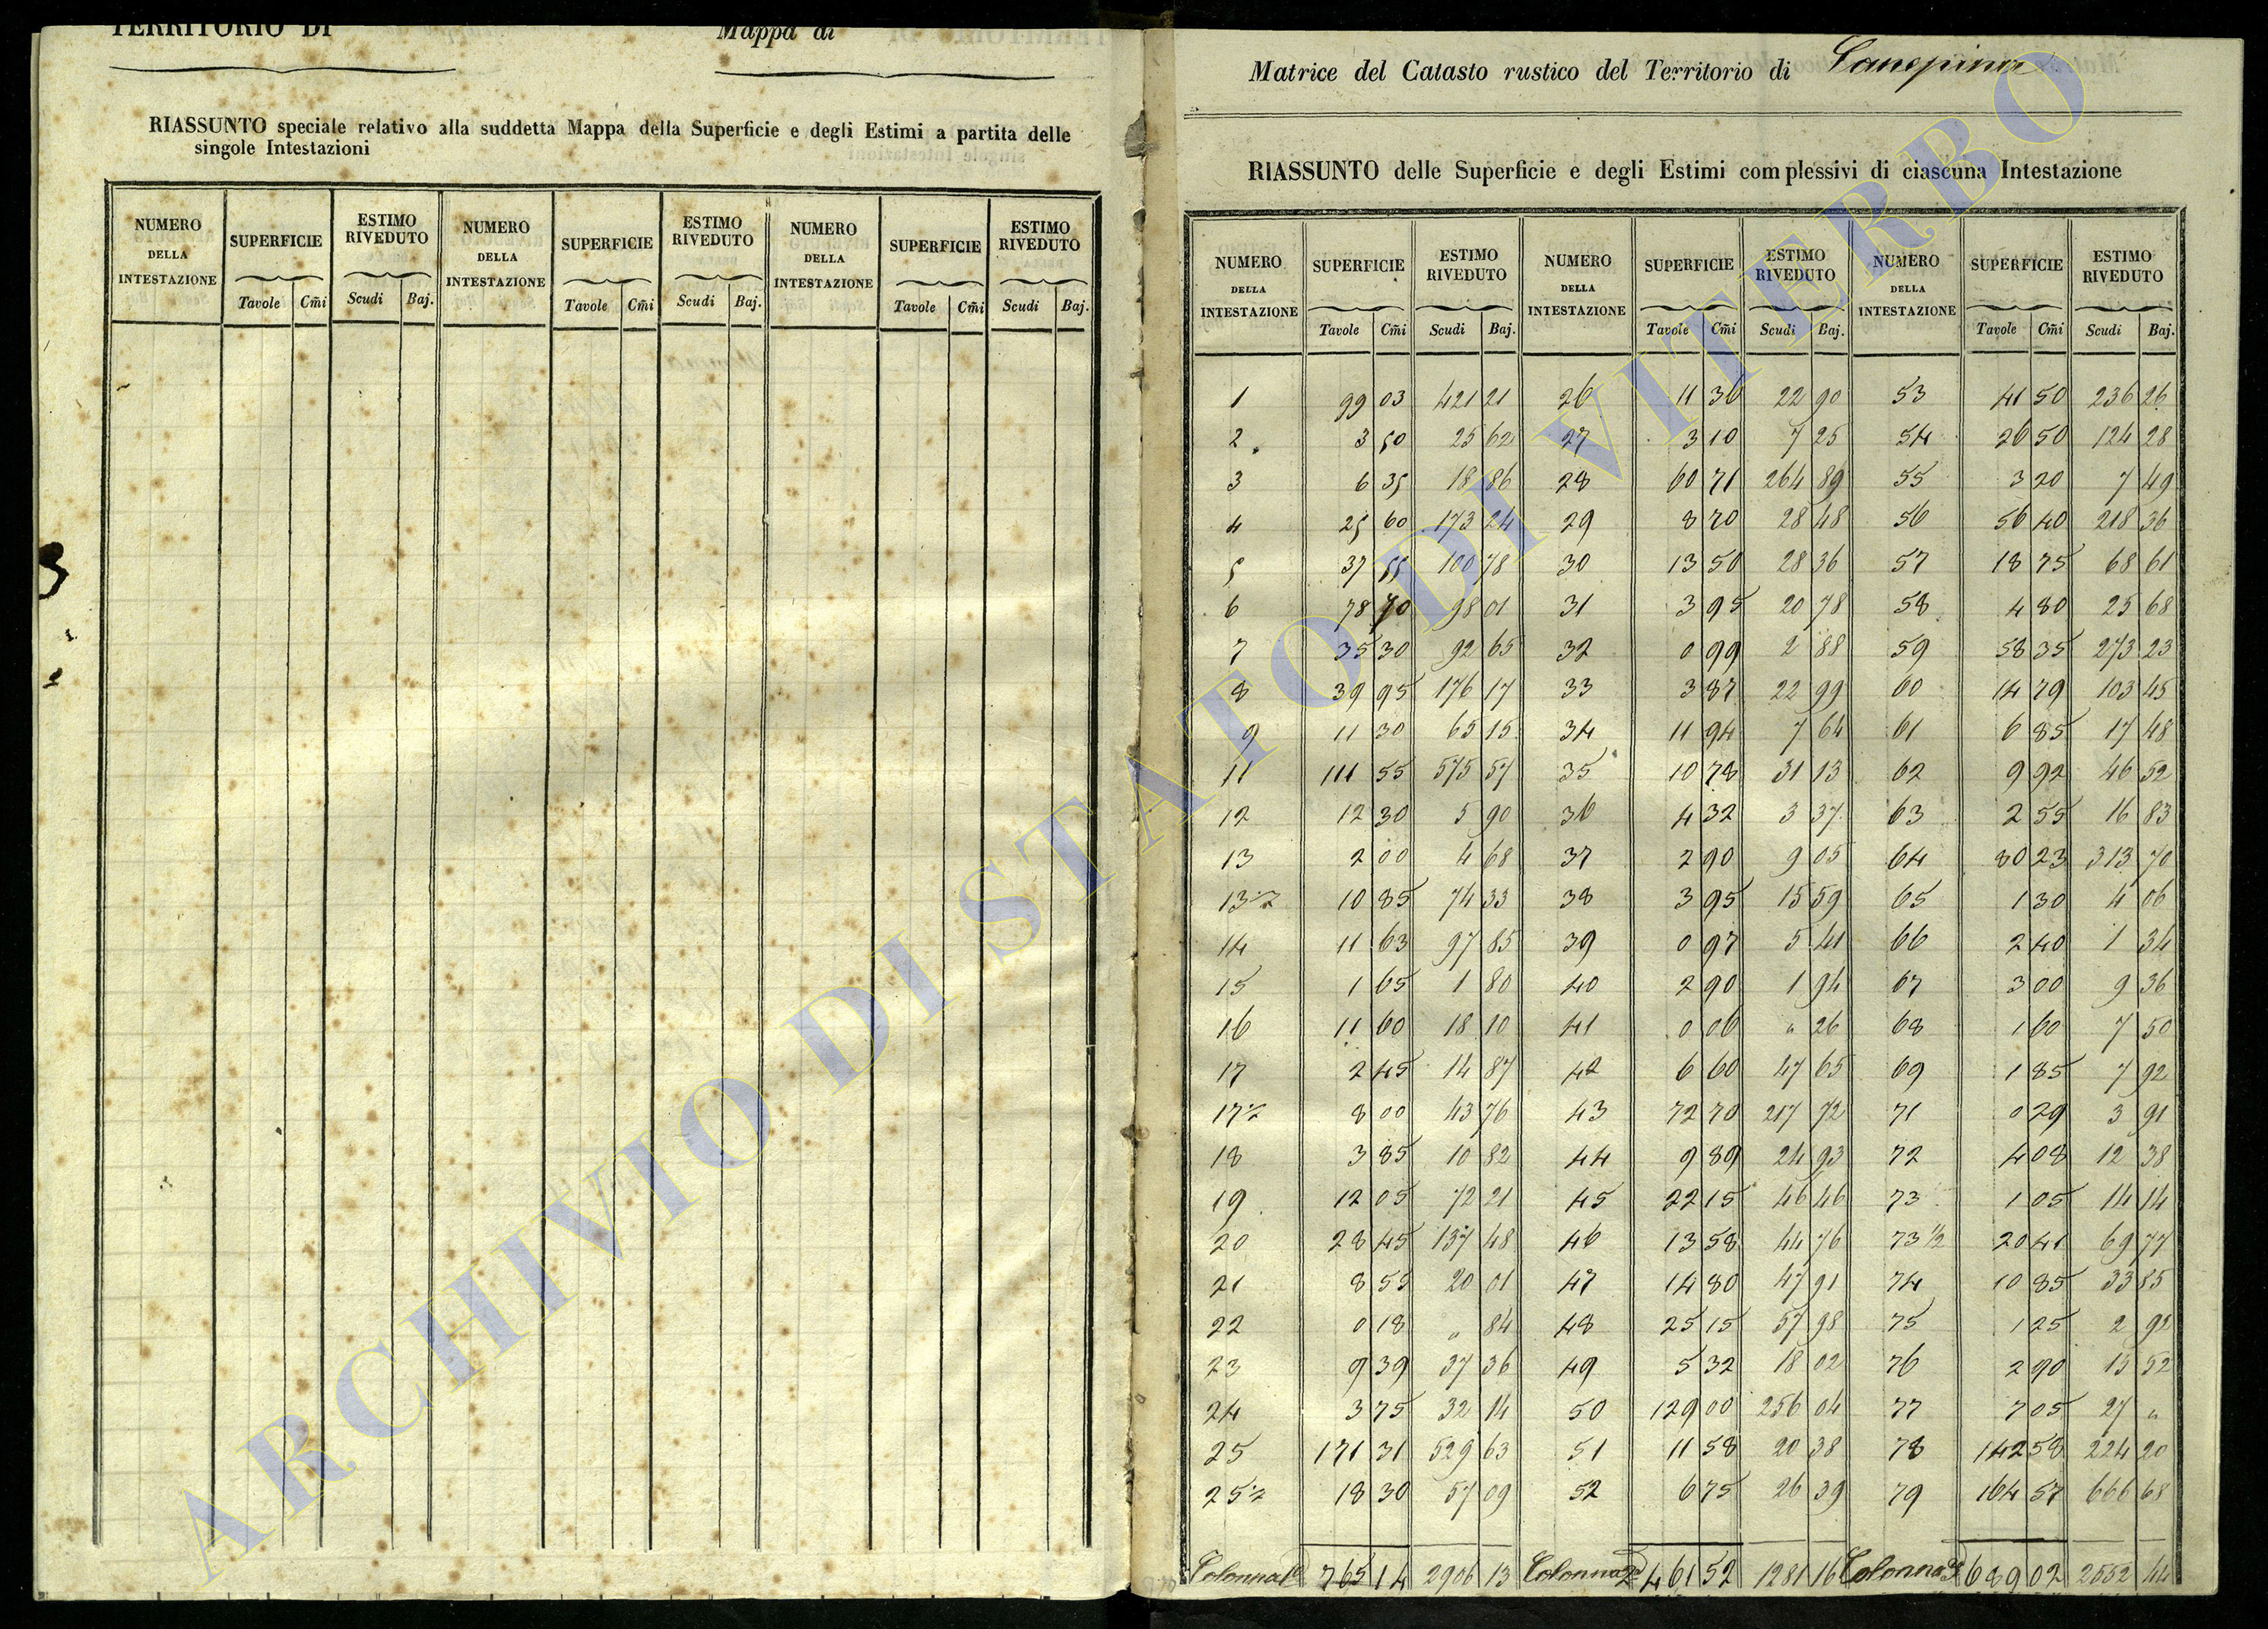 TERRITORIO DI Mappa di
RIASSUNTO speciale relativo alla suddetta Mappa della Superficie e degli Estimi a partita delle
singole Intestazioni
NUMERO DELLA INTESTAZIONE SUPERFICIE ESTIMO RIVEDUTO NUMERO DELLA INTESTAZIONE SUPERFICIE ESTIMO RIVEDUTO NUMERO DELLA INTESTAZIONE SUPERFICIE ESTIMO RIVEDUTO
Tavole Cm̃i Scudi Baj. Tavole Cm̃i Scudi Baj. Tavole Cm̃i Scudi Baj.
Matrice del Catasto rustico del Territorio di Canepina
RIASSUNTO delle Superficie e degli Estimi complessivi di ciascuna Intestazione
NUMERO DELLA INTESTAZIONE SUPERFICIE ESTIMO RIVEDUTO NUMERO DELLA INTESTAZIONE SUPERFICIE ESTIMO RIVEDUTO NUMERO DELLA INTESTAZIONE SUPERFICIE ESTIMO RIVEDUTO
Tavole Cm̃i Scudi Baj. Tavole Cm̃i Scudi Baj. Tavole Cm̃i Scudi Baj.
1 99 03 421 21 26 11 36 22 90 53 41 50 236 26
2 3 50 25 62 27 3 10 7 25 54 26 50 124 28
3 6 35 18 86 28 60 71 264 89 55 3 20 7 49
4 25 60 173 24 29 8 70 28 48 56 56 40 218 36
5 37 55 100 78 30 13 50 28 36 57 18 75 68 61
6 78 70 98 01 31 3 95 20 78 58 4 80 25 68
7 35 30 92 65 32 0 99 2 88 59 58 35 273 23
8 39 95 176 17 33 3 87 22 99 60 14 79 103 45
9 11 30 65 15 34 11 94 7 64 61 6 85 17 48
11 111 55 575 57 35 10 78 31 13 62 9 92 46 52
12 12 30 5 90 36 4 32 3 37 63 2 55 16 83
13 2 00 4 68 37 2 90 9 05 64 80 23 313 70
13½ 10 85 74 33 38 3 95 15 59 65 1 30 4 06
14 11 63 97 85 39 0 97 5 41 66 2 40 1 34
15 1 65 1 80 40 2 90 1 94 67 3 00 9 36
16 11 60 18 10 41 0 06 „ 26 68 1 60 7 50
17 2 45 14 87 42 6 60 47 65 69 1 85 7 92
17½ 8 00 43 76 43 72 70 217 72 71 0 29 3 91
18 3 85 10 82 44 9 89 24 93 72 4 08 12 38
19 12 05 72 21 45 22 15 46 46 73 1 05 14 14
20 28 45 137 48 46 13 58 44 76 73 1/2 20 41 69 77
21 8 55 20 01 47 14 80 47 91 74 10 85 33 85
22 0 18 „ 84 48 25 15 57 98 75 1 25 2 92
23 9 39 37 36 49 5 32 18 02 76 2 90 15 52
24 3 75 32 14 50 129 00 256 04 77 7 05 27 „
25 171 31 529 63 51 11 58 20 38 78 142 58 224 20
25½ 18 30 57 09 52 6 75 26 39 79 164 57 666 68
Colonna 1ª 765 14 2906 13 Colonna 2ª 461 52 1281 16 Colonna 3ª 689 02 2552 44
ARCHIVIO DI STATO DI VITERBO